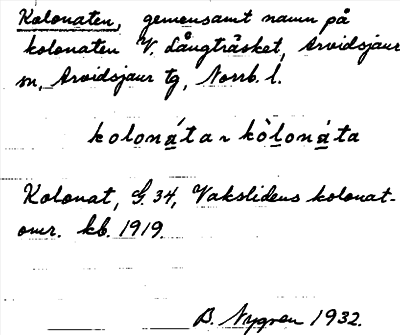 Kolonaten, gemensamt namn på
kolonaten V. Långträsket, Arvidsjaur
sn, Arvidsjaur tg, Norrb. l.
kolonáta ~ kòlonáta
Kolonat, G. 34, Vakslidens kolonat-
omr. kb. 1919.
B. Nygren 1932.